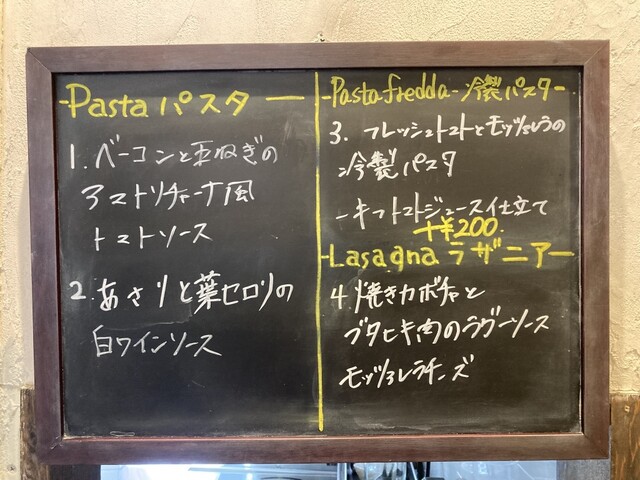 -Pasta パスタ —
1. ベーコンと玉ねぎの
アマトリチャーナ風
トマトソース
2. あさりと葉セロリの
白ワインソース
-Pasta fredda- 冷製パスタ-
3. フレッシュトマトとモッツァレラの
冷製パスタ
-キントマトジュース仕立て
+¥200
-Lasagna ラザニアー
4. 焼きカボチャと
ブタヒキ肉のラグーソース
モッツァレラチーズ